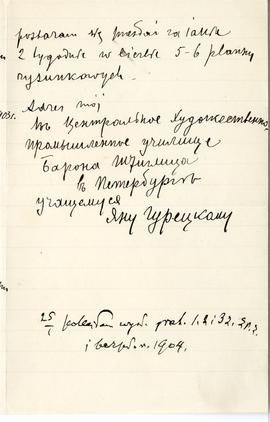 postaram się przesłać za jakie
2 tygodnie w liczbie 5-6 planów
rysunkowych.
Adres mój
Въ Центральное Художественно
Промышленное училище
Барона Штиглица
в Петербургѣ
учащемуся
Яну Гурецкому
25/I wyd. 1, 2 i 32.
i 1904.